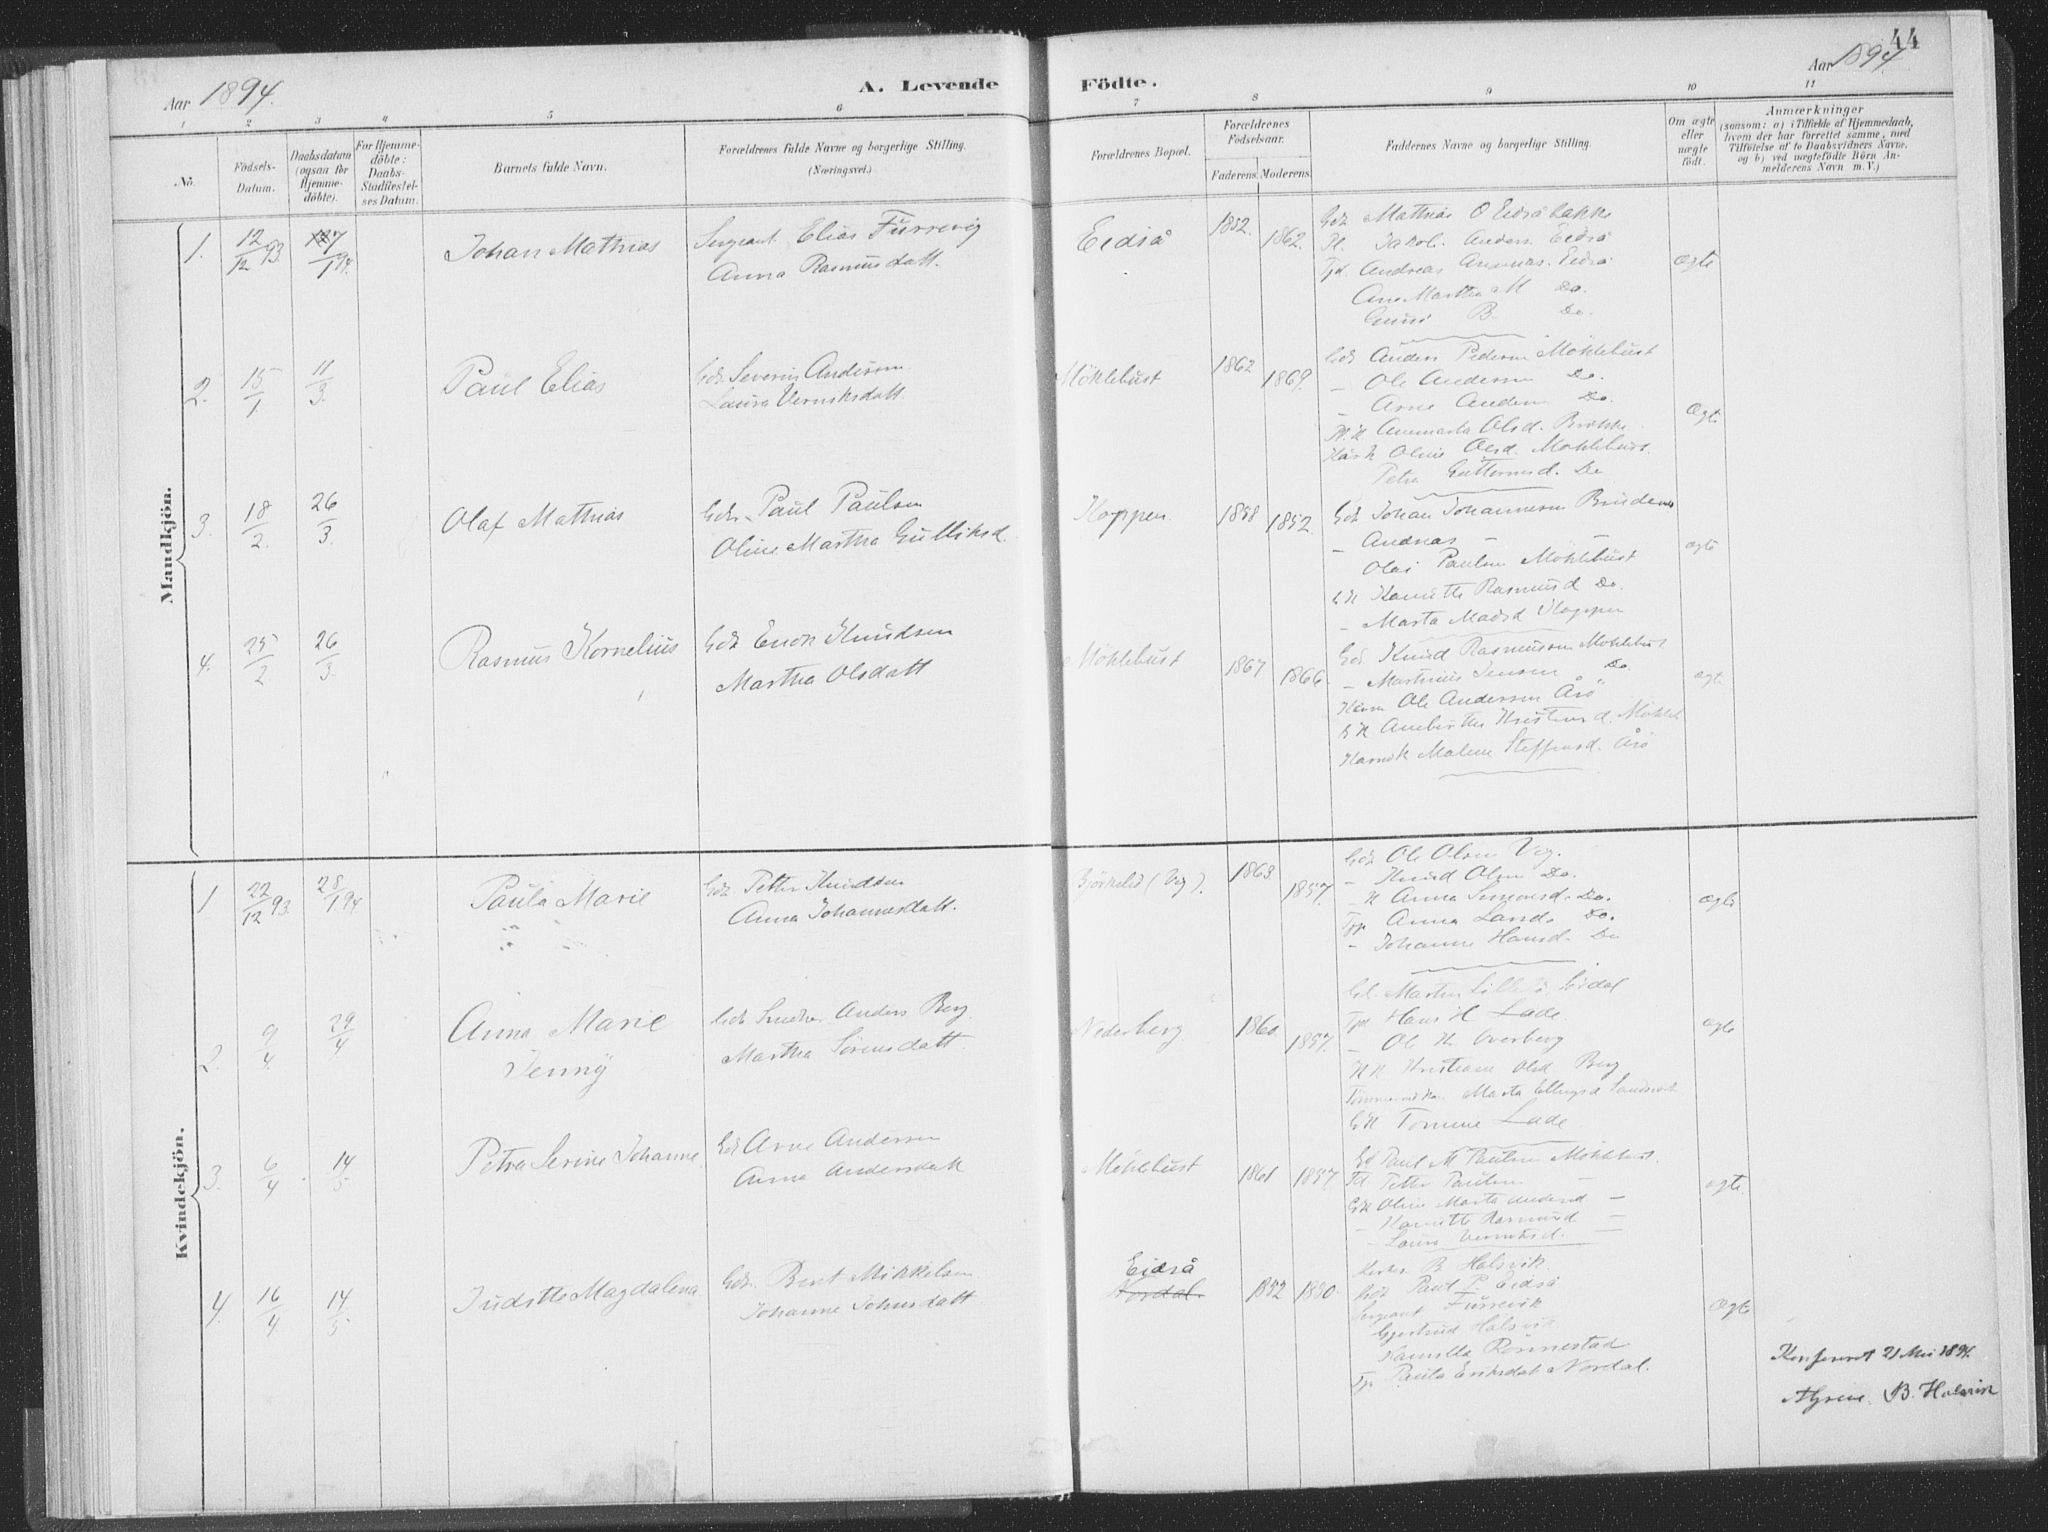 44
Aar 1894.
A. Levende Födte.
Aar 1894.
1 2 3 4 5 6 7 8 9 10 11
No.
Födsels-Datum.
Daabsdatum (ogsaa for Hjemme-döbte).
For Hjemme-döbte: Daabs-Stadfæstel-ses Datum.
Barnets fulde Navn.
Forældrenes fulde Navne og borgerlige Stilling. (Næringsvei.)
Forældrenes Bopæl.
Forældrenes Födselsaar.
Faderens. Moderens.
Faddernes Navne og borgerlige Stilling.
Om ægte eller uægte födt.
Anmærkninger
(saasom: a) i Tilfælde af Hjemmedaab,
hvem der har forrettet samme, med
Tilföielse af to Daabsvidners Navne,
og b) ved uægtefödte Börn An-
melderens Navn m. V.)
Mandkjön.
1. 12/12 93. 7/1 94. Johan Mathias
Sergeant Elias Furrevig
Anna Rasmusdatt.
Eidså 1852. 1862.
Gdr Mathias O Eidsåbakke
Pl. Jakob Anders Eidså
Tjd. Andreas Eidså
Ane Martha M Do.
B. Do.
ægte
2. 15/1 11/3. Paul Elias
Gdr. Severin Andersen
Laura Verniksdatt.
Möklebust 1862 1869.
Gdr Anders Pedersen Möklebust
- Ole Andersen Do.
- Arne Anders Do.
Anemarta Olsd. Brekke
Oline Olsd. Möklebust.
Petra Guttormsd. Do
Ægte
3. 18/2. 26/3. Olaf Mathias
Gdr. Paul Paulsen
Oline Martha Gulliksd.
Koppen. 1858 1852.
Gdr Johan Johannesen
- Andreas - -
Olai Paulsen Möklebust
Rasmusd Do.
- Marta Madsd Koppen
ægte
4. 25/2. 26/3. Rasmus Kornelius
Gdr Enok Knudsen
Martha Olsdatt
Möklebust 1867 1866.
Gdr. Knud Rasmussen Möklebust
- Martinus Jensen Do
Ole Andersen Årö
Malene Steffensd. Årö
ægte
Kvindekjön.
1 22/12 93. 28/1 94. Paula Marie
Gdr Petter Knudsen
Anna Johannesdatt.
Björkelid (Veg). 1863. 1857.
Gdr Ole Olsen Veg.
- Knud Olsen Do.
- K Anna Simonsd. Do.
Tjp Anna Lande Do.
- Johanne Hansd. Do
ægte
2. 9/4. 29/4 Anna Marie
Jenny
Anders Berg.
Martha Sörensdatt.
Nederberg 1860 1857.
Tjd Hans H Lade.
- Ole H. Overberg
Olsd. Berg
Marta Ellingsd Sandvik
Lade
ægte
3. 6/4 14/5 Petra Serine Johanne
Gdr Arne Andersen
Anna Andersdatt
Möklebust 1861 1857.
Gdr Paul M Paulsen Möklebust.
Petter Paulsen -
Oline Marta Andersd -
- Rasmusd -
- Laura
ægte
4. 16/4 14/5. Juditte Magdalena
Gdr. Bent Mikkelsen
Johanne Johnsdatt
Eidså
Nordal. 1852 1850.
B. Halsvik
Gdr Paul P. Eidså
Sergeant Furrevik
Gjertrud Halsvik
Kamilla Rönnestad
Tjp Paula Eriksdat Nordal.
Ægte
Konfereret 21 Mai 1894.
B. Halsvik